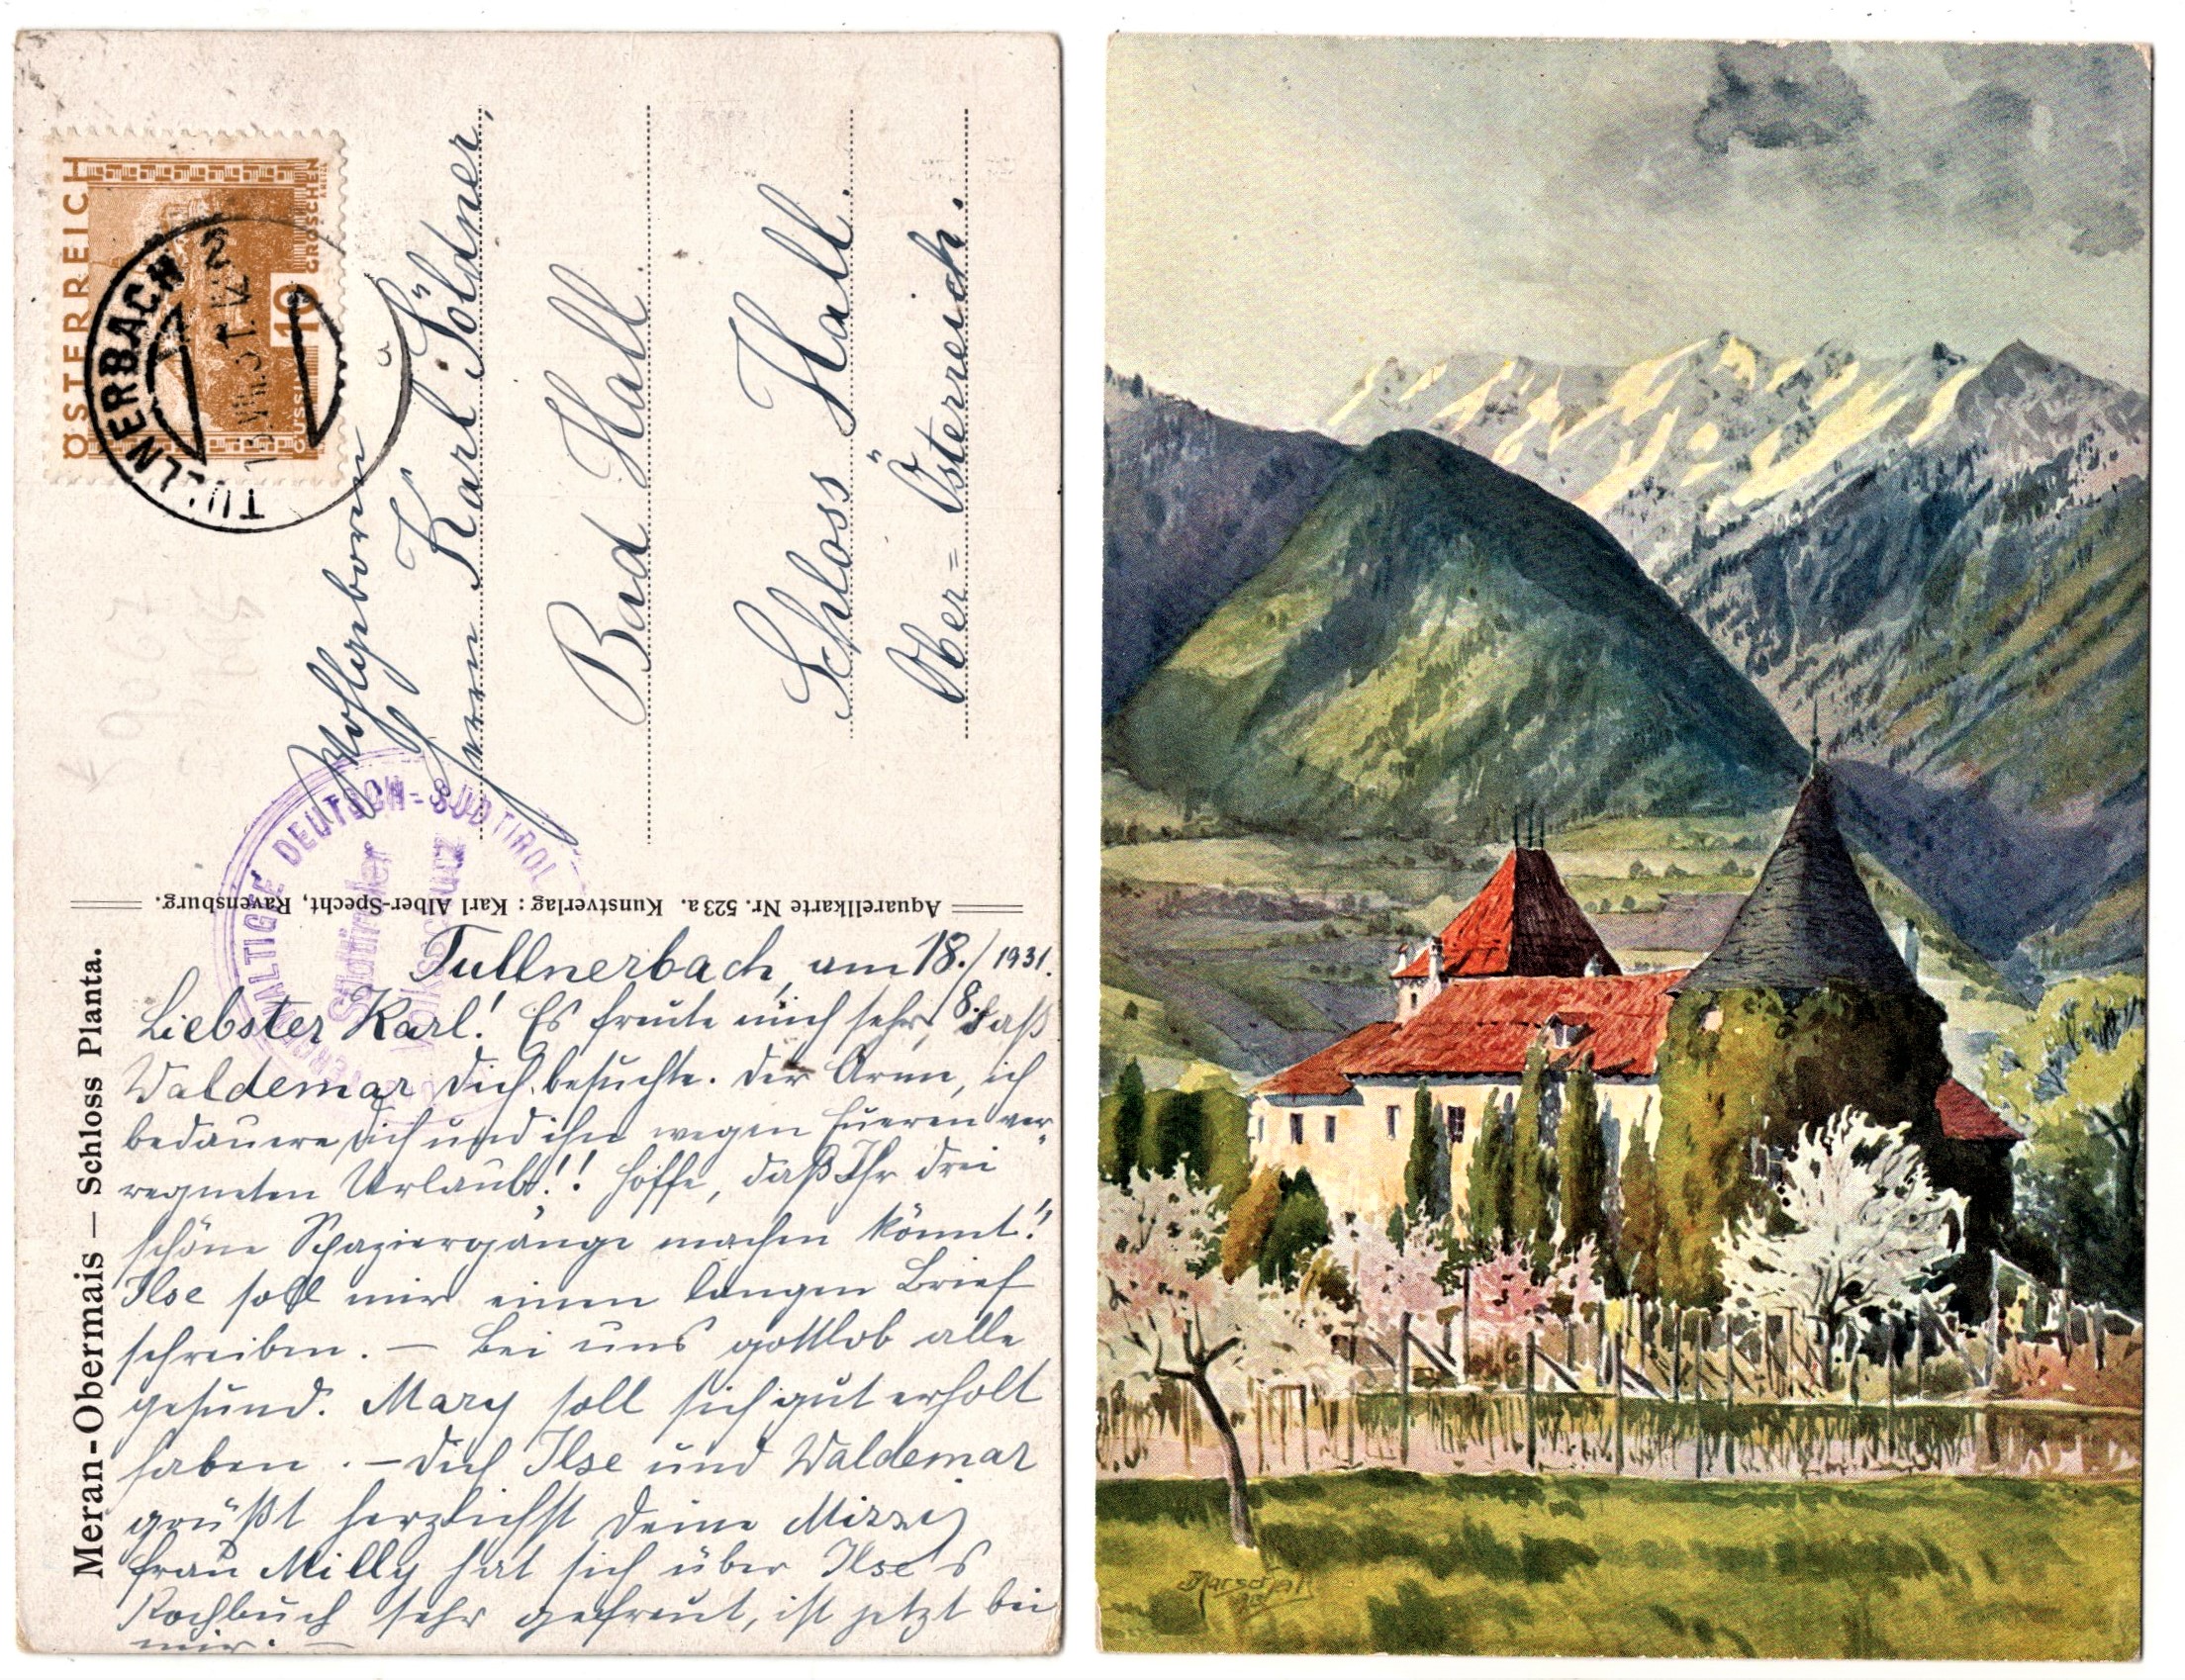 ÖSTERREICH
10
GROSCHEN
GÜSSING
TULLNERBACH 2
DEUTSCH-SÜDTIROL
Südtiroler
Wohlgeboren
Herrn Karl Söldner,
Bad Hall
Schloss Hall.
Ober=Österreich.
Aquarellkarte Nr. 523a. Kunstverlag: Karl Alber-Specht, Ravensburg.
Meran-Obermais — Schloss Planta.
Tullnerbach, am 18./8. 1931.
Liebster Karl! Es freute mich sehr, daß
Waldemar Dich besuchte. Der Arme, ich
bedauere Dich und ihn wegen Eueren ver-
regneten Urlaub!! Hoffe, daß Ihr drei
schöne Spaziergänge machen könnt!!
Ilse soll mir einen langen Brief
schreiben. — Bei uns gottlob alle
gesund. Mary soll sich gut erholt
haben. — Dich Ilse und Waldemar
grüßt herzlichst Deine Mizzi
Frau Milly hat sich über Ilse's
Kochbuch sehr gefreut, ist jetzt bei
mir. —